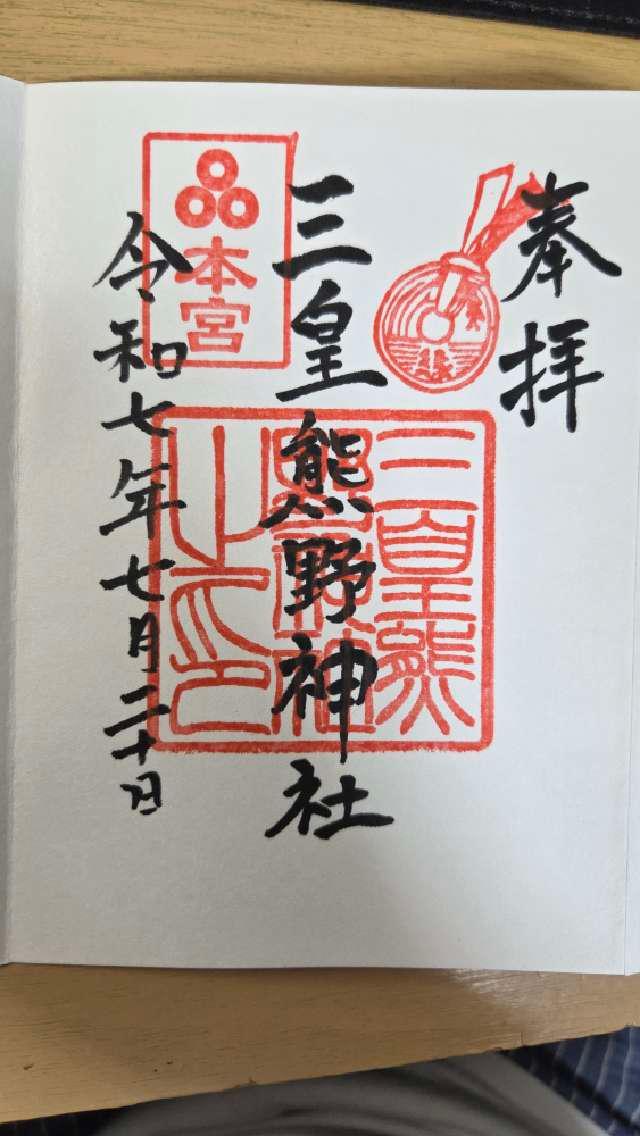 奉拝
三皇熊野神社
本宮
令和七年七月二十日
三皇熊
野神社
之印